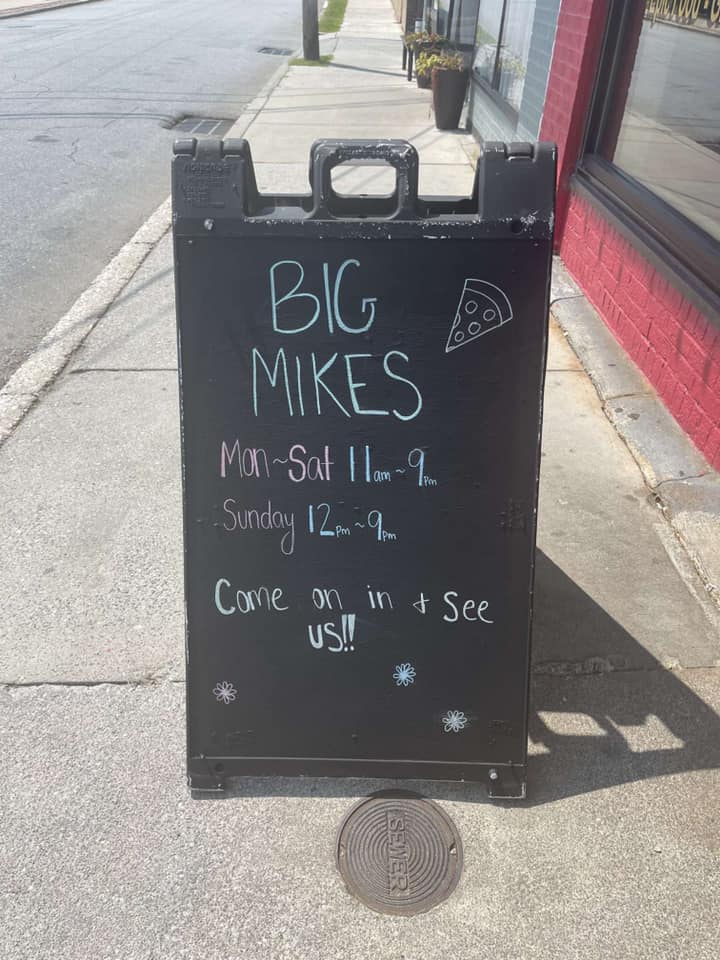 BIG
MIKES
Mon~Sat 11am~9pm
Sunday 12pm~9pm
Come on in & See
us!!
SEWER